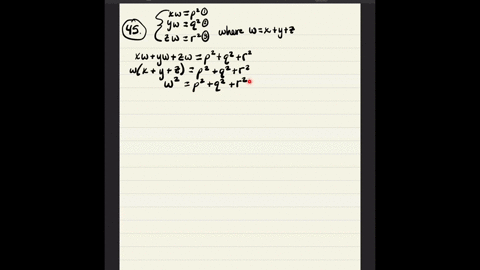 45. { xw = p² ①
yw = q² ②
zw = r² ③ where w = x + y + z
xw + yw + zw = p² + q² + r²
w(x + y + z) = p² + q² + r²
w² = p² + q² + r²